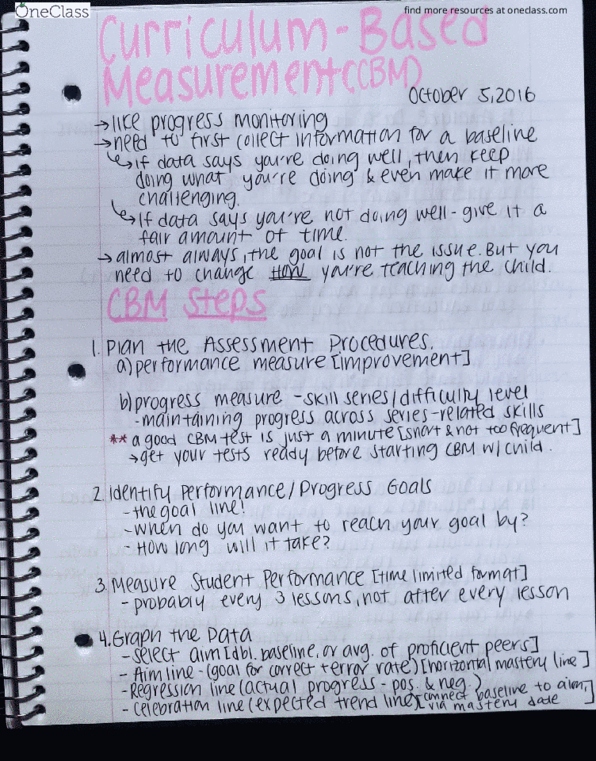 OneClass
find more resources at oneclass.com
Curriculum-Based
Measurement (CBM)
October 5, 2016
→ like progress monitoring
→ need to first collect information for a baseline
↳ if data says you're doing well, then keep
doing what you're doing & even make it more
challenging.
↳ If data says you're not doing well - give it a
fair amount of time.
→ almost always, the goal is not the issue. But you
need to change HOW you're teaching the child.
CBM Steps
1. Plan the Assessment Procedures.
a) performance measure [improvement]
b) progress measure - skill series/difficulty level
- maintaining progress across series-related skills
** a good CBM test is just a minute [short & not too frequent]
→ get your tests ready before starting CBM w/ child.
2. Identify Performance/Progress Goals
- the goal line!
- When do you want to reach your goal by?
- How long will it take?
3. Measure Student Performance [time limited format]
- probably every 3 lessons, not after every lesson
4. Graph the Data
- select aim [dbl. baseline, or avg. of proficient peers]
- Aim line - (goal for correct + error rate) [horizontal mastery line]
- Regression line (actual progress - pos. & neg.)
- celebration line (expected trend line) [connect baseline to aim,
via mastery date]